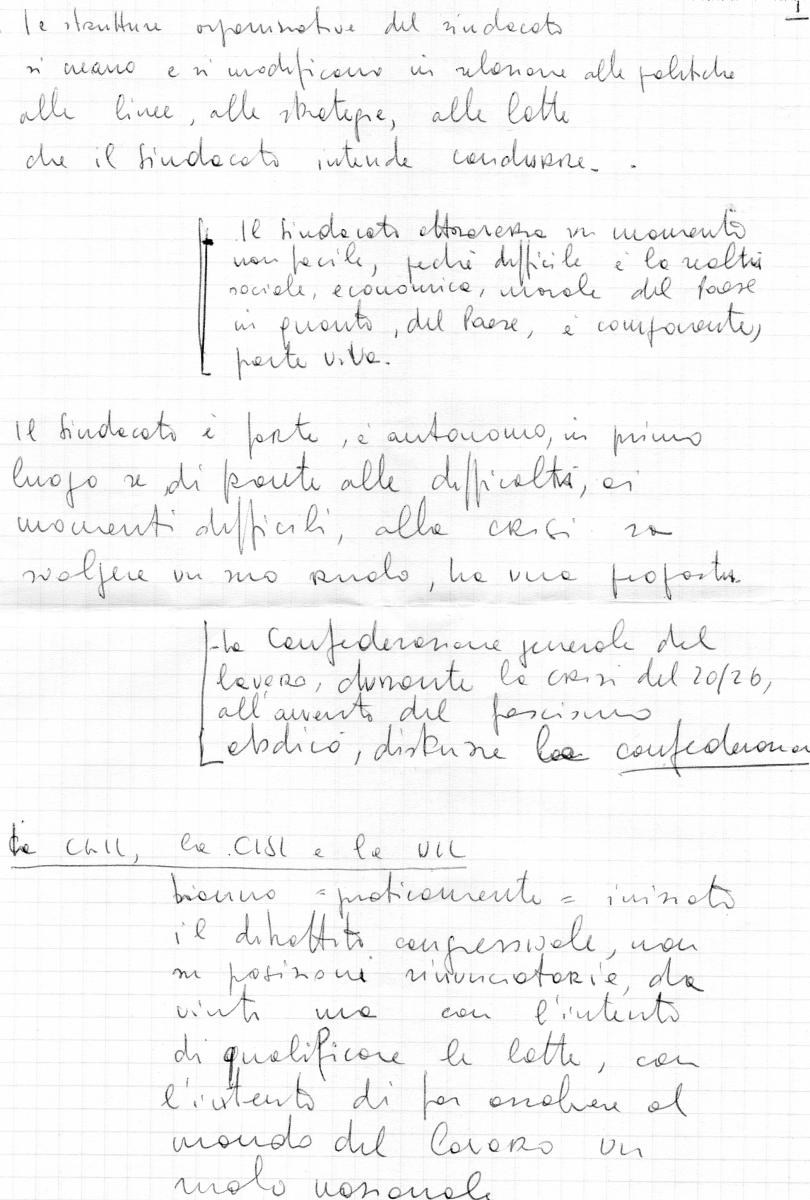 1
le strutture organizzative del sindacato
si creano e si modificano in relazione alle politiche
alle linee, alle strategie, alle lotte
che il Sindacato intende condurre.
Il Sindacato attraversa un momento
non facile, perchè difficile è la realtà
sociale, economica, morale del Paese
in quanto, del Paese, è componente,
parte viva.
Il Sindacato è forte, è autonomo, in primo
luogo se, di fronte alle difficoltà, ai
momenti difficili, alla crisi sa
svolgere un suo ruolo, ha una proposta
- La Confederazione generale del
lavoro, durante la crisi del 20/26,
all'avvento del fascismo
abdicò, distrusse la
La CGIL, la CISL e la UIL
hanno = praticamente = iniziato
il dibattito congressuale, non
su posizioni rinunciatarie, da
vinti ma con l'intento
di qualificare le lotte, con
l'intento di far assolvere al
mondo del lavoro un
ruolo nazionale